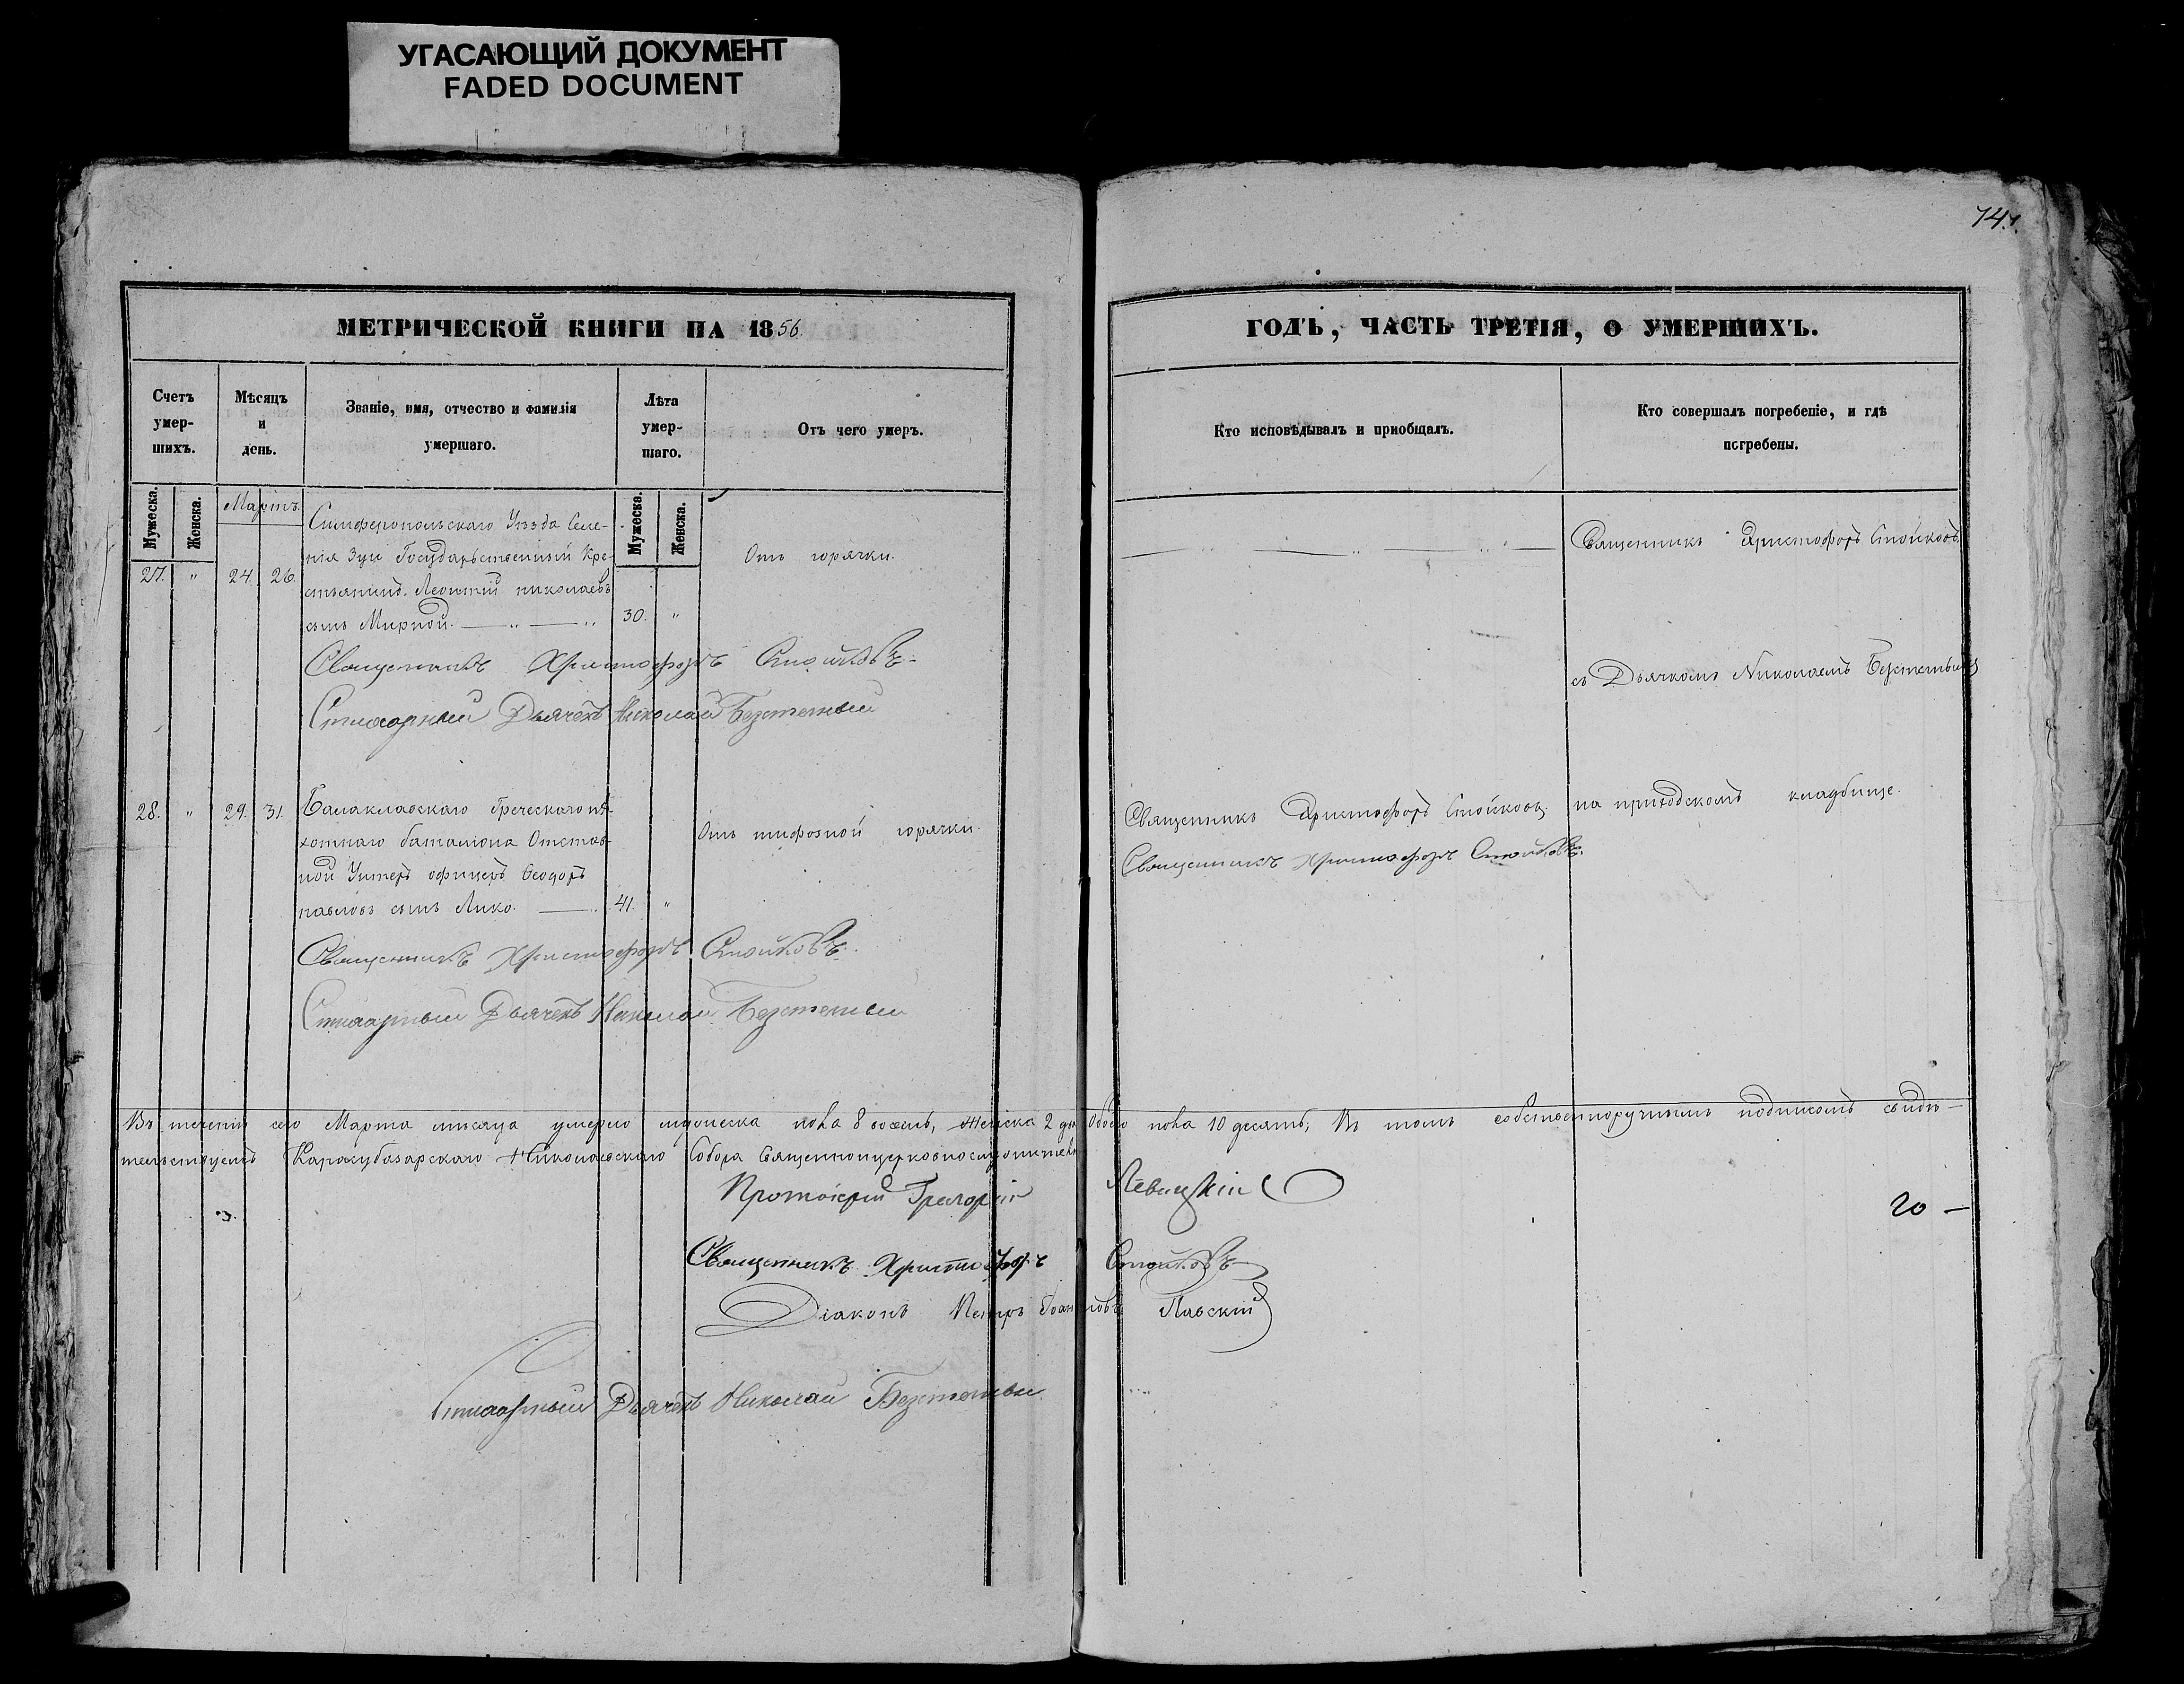 УГАСАЮЩИЙ ДОКУМЕНТ
FADED DOCUMENT
МЕТРИЧЕСКОЙ КНИГИ НА 1856.
Счетъ умер-шихъ.
Мѣсяцъ и день.
Званіе, имя, отчество и фамилія умершаго.
Лѣта умер-шаго.
Отъ чего умеръ.
Мужеска. Женска.
Мартъ.
Мужеска. Женска.
Симферопольскаго Уѣзда Селе-
нія Зуи Государственный Кре-
27. " 24. 26. стьянинъ Леонтій николаевъ
сынъ Мирной. 30. "
Отъ горячки.
Священникъ Христофоръ Стойковъ
Стихарный Дьячекъ Николай Безстенный
28. " 29. 31. Балаклавскаго Греческаго пѣ-
хотнаго баталіона Отстав-
ной Унтеръ офицеръ Ѳеодоръ
павловъ сынъ Лико. 41. "
Отъ тифозной горячки.
Священникъ Христофоръ Стойковъ.
Стихарный Дьячекъ Николай Безстенный
ГОДЪ, ЧАСТЬ ТРЕТІЯ, О УМЕРШИХЪ.
Кто исповѣдывалъ и пріобщалъ.
Кто совершалъ погребеніе, и гдѣ погребены.
Священникъ Христофоръ Стойковъ
съ Дьячкомъ Николаемъ
Священникъ Христофоръ Стойковъ. на приходскомъ кладбище.
Священникъ Христофоръ Стойковъ.
Въ теченіи сего Марта мѣсяца умерло мужеска пола 8 восемь, женска 2 две Обоего пола 10 десять, Въ томъ собственноручнымъ подписомъ свидѣ-
тельствуемъ Карасубазарскаго Николаевскаго Собора Священноцерковнослужители
Протоіерей Григорій Левицкій
20 —
Священникъ Христофоръ Стойковъ
Діаконъ Петръ Іоанновъ
Стихарный Дьячекъ Николай Безстенный